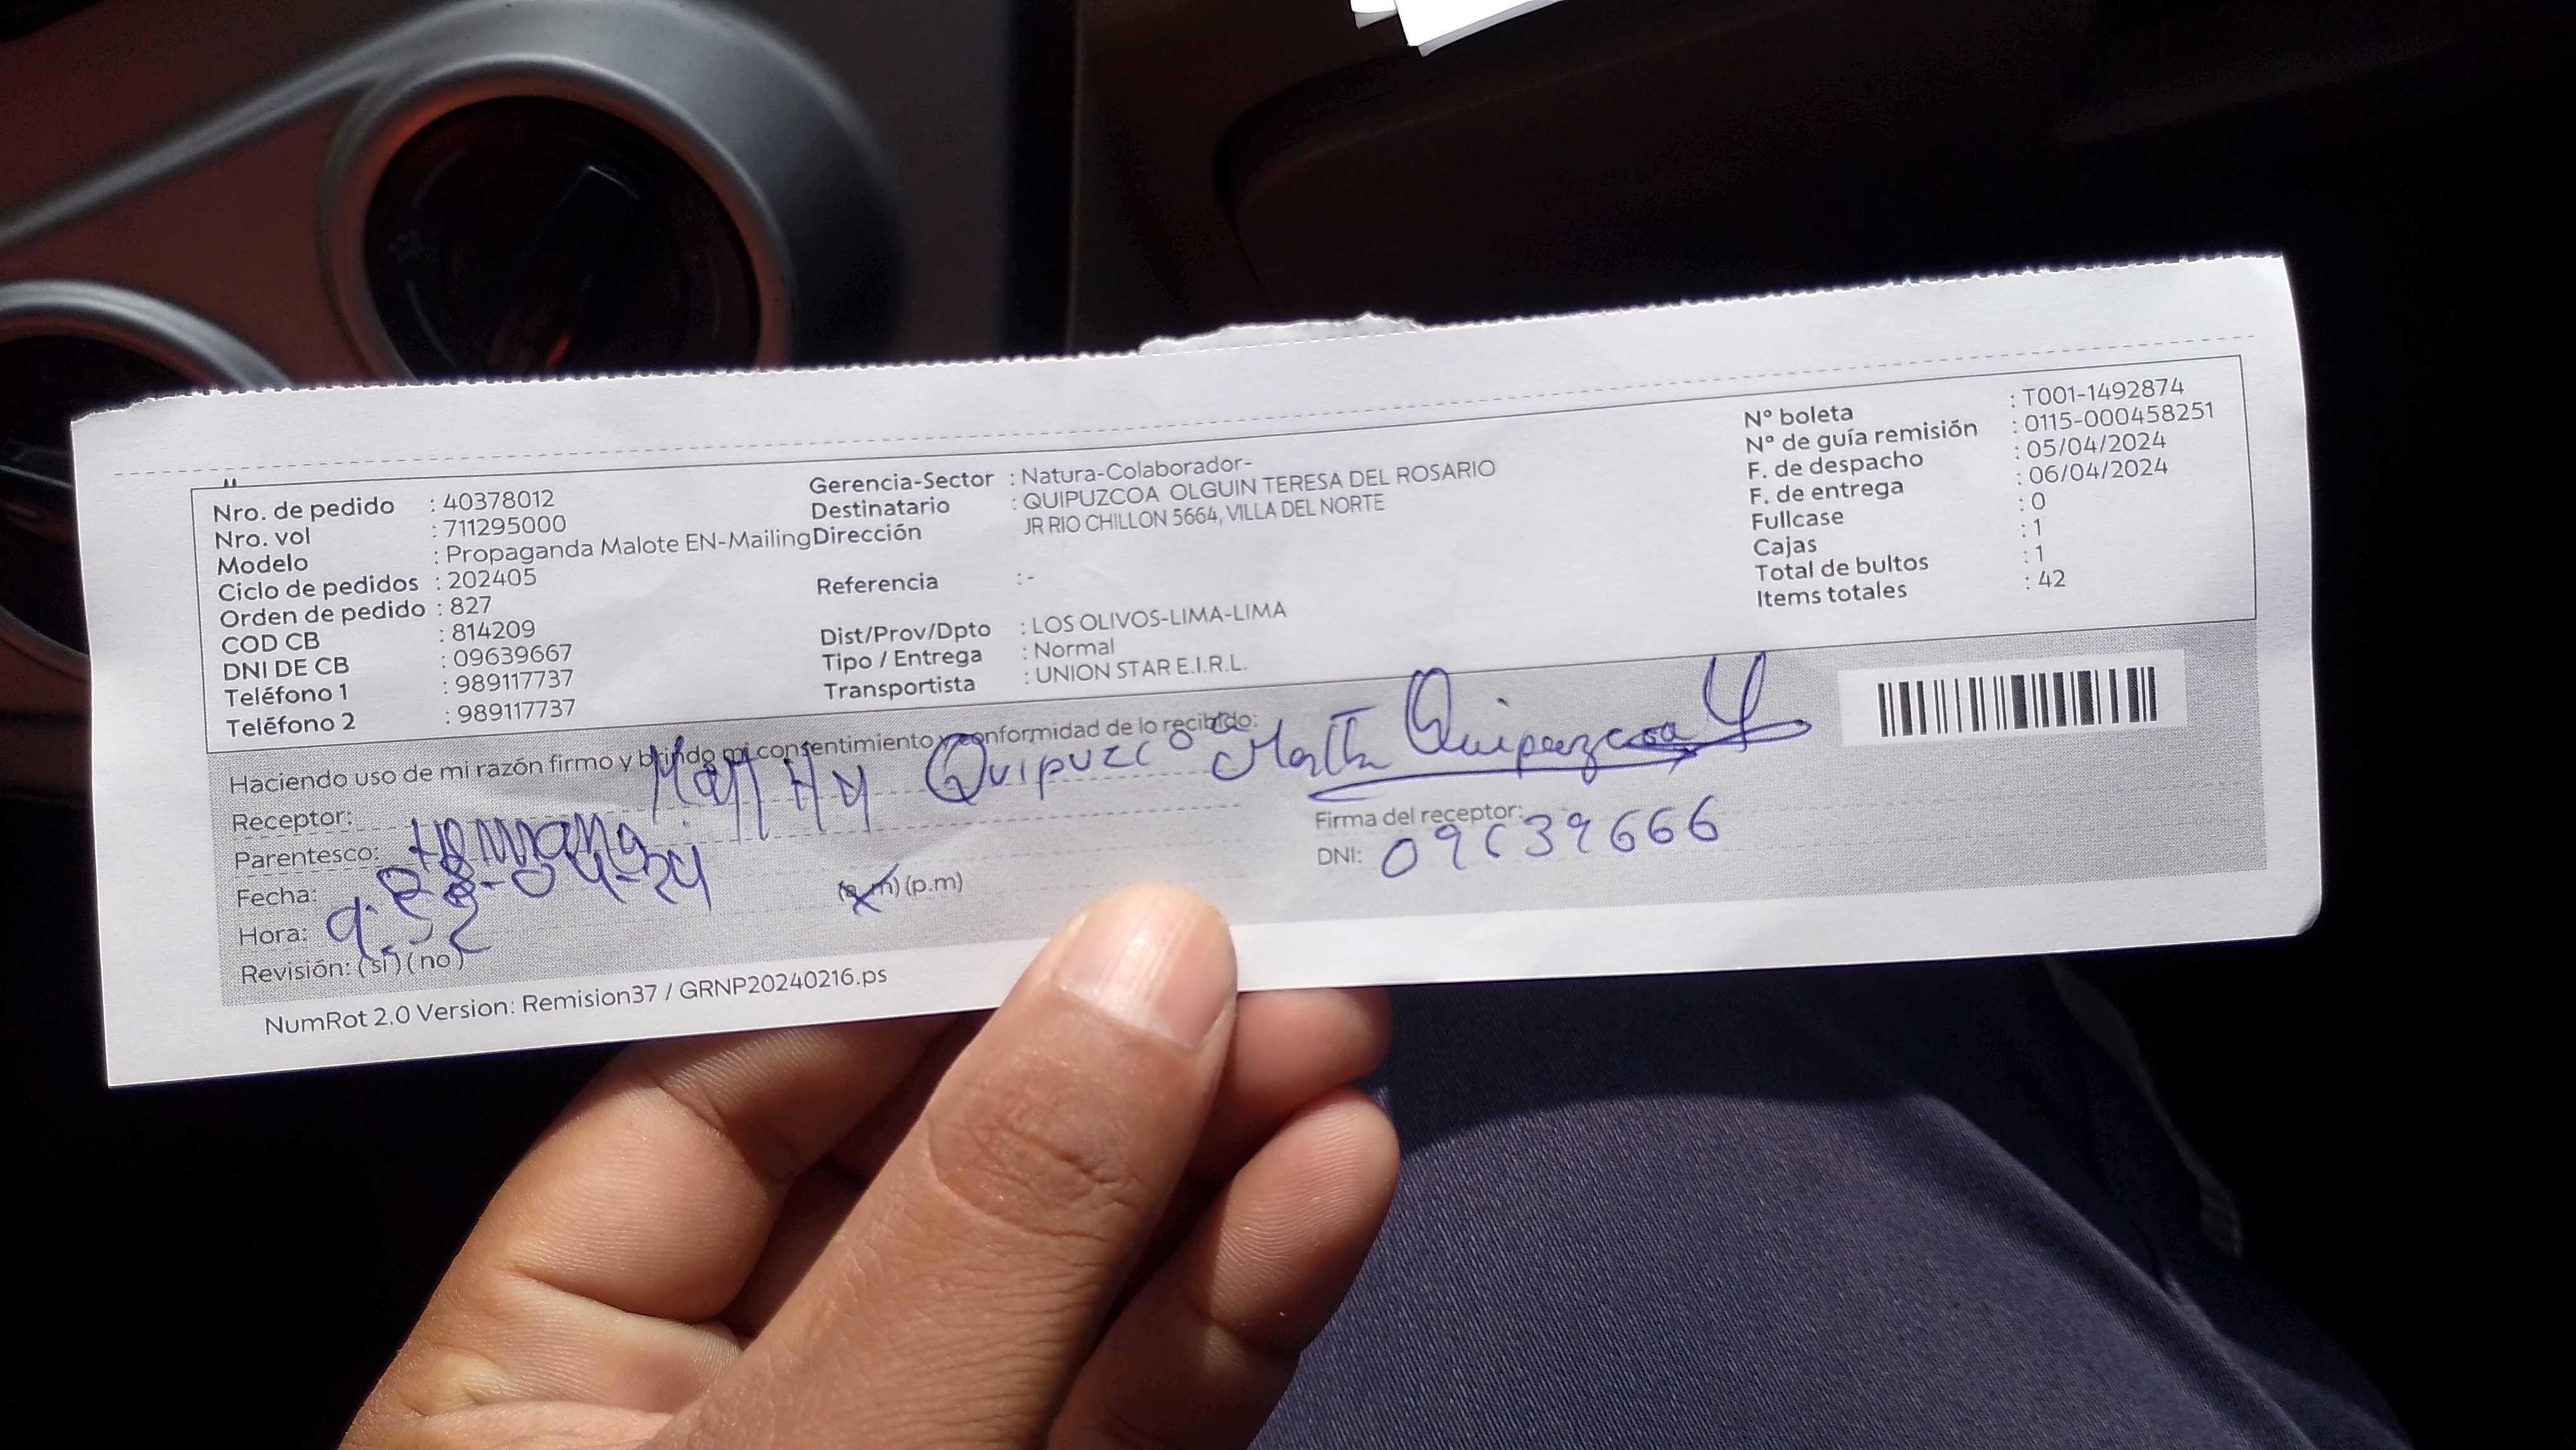 Nro. de pedido : 40378012
Nro. vol : 711295000
Modelo : Propaganda Malote EN-Mailing
Ciclo de pedidos : 202405
Orden de pedido : 827
COD CB : 814209
DNI DE CB : 09639667
Teléfono 1 : 989117737
Teléfono 2 : 989117737
Gerencia-Sector : Natura-Colaborador-
Destinatario : QUIPUZCOA OLGUIN TERESA DEL ROSARIO
Dirección JR RIO CHILLON 5664, VILLA DEL NORTE
Referencia : -
Dist/Prov/Dpto : LOS OLIVOS-LIMA-LIMA
Tipo / Entrega : Normal
Transportista : UNION STAR E.I.R.L.
N° boleta : T001-1492874
N° de guía remisión : 0115-000458251
F. de despacho : 05/04/2024
F. de entrega : 06/04/2024
Fullcase : 0
Cajas : 1
Total de bultos : 1
Items totales : 42
Haciendo uso de mi razón firmo y brindo mi consentimiento y conformidad de lo recibido:
Receptor: Quipuzcoa
Parentesco: Hermana
Fecha: -04-24
Hora: 9:52 (a.m) (p.m)
Revisión: (si) (no)
Quipuzcoa
Firma del receptor:
DNI: 09639666
NumRot 2.0 Version: Remision37 / GRNP20240216.ps